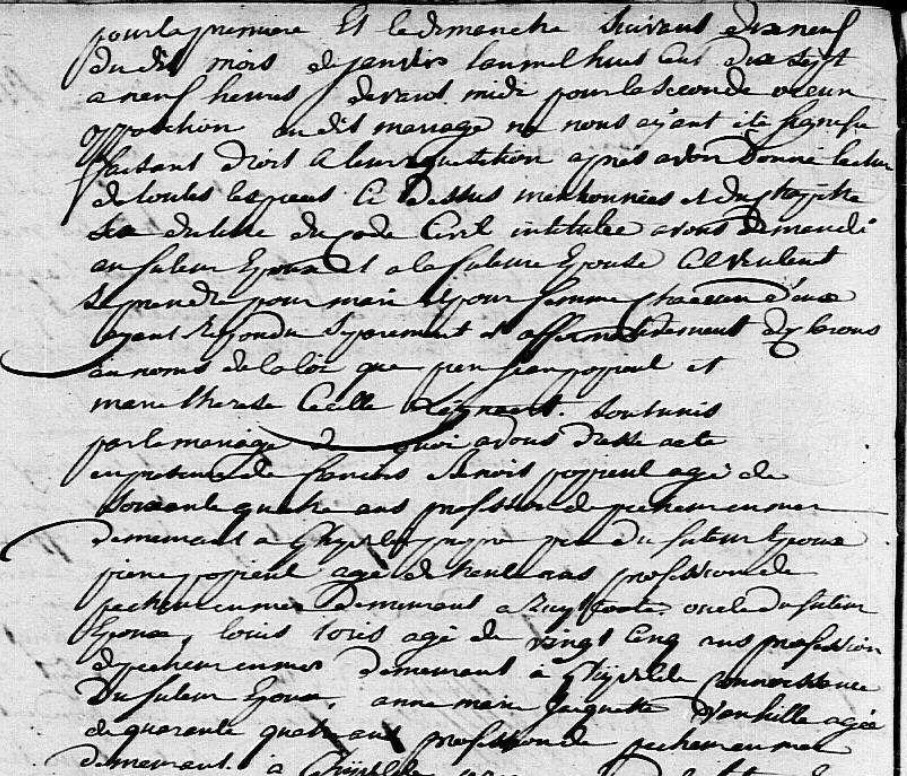 pour la premiere Et le dimanche Suivant dix neuf
du dit mois de janvier lan mil huit cent dix Sept
a neuf heures devant midi pour la Seconde aucun
opposition au dit mariage ne nous ayant ete Signifie
faisant droit a leur requisition apres avoir Donné lectur
de toutes les pieces Ci Dessus mentionnées et du Chapitre
Six du titre du Code Civil intitulee avons Demandé
au futeur Epoux et a la future Epouse Cil veulent
Se prendre pour mari et pour femme Chaccun d'eux
ayant Repondu Separement et affirmativement declarons
au noms de la loi que pierre jean popieul et
marie therese Cecille Sont unis
par le mariage de quoi avons Dressé acte
en presence de francois Benoit popieul agé de
Soixante quatre ans profession de pecheur en mer
demeurant a Ghyvelde pere du futeur Epoux
pierre popieul agé de trente ans profession de
pecheur en mer Demeurant a Zuydcoote oncle du futeur
Epoux, louis agé de vingt Cinq ans profession
de pecheur en mer demeurant à Ghyvelde Connoissance
Du futeur Epoux, anne marie Jacquette agée
de quarante quatre ans profession de pecheur en mer
demeurant à Ghyvelde